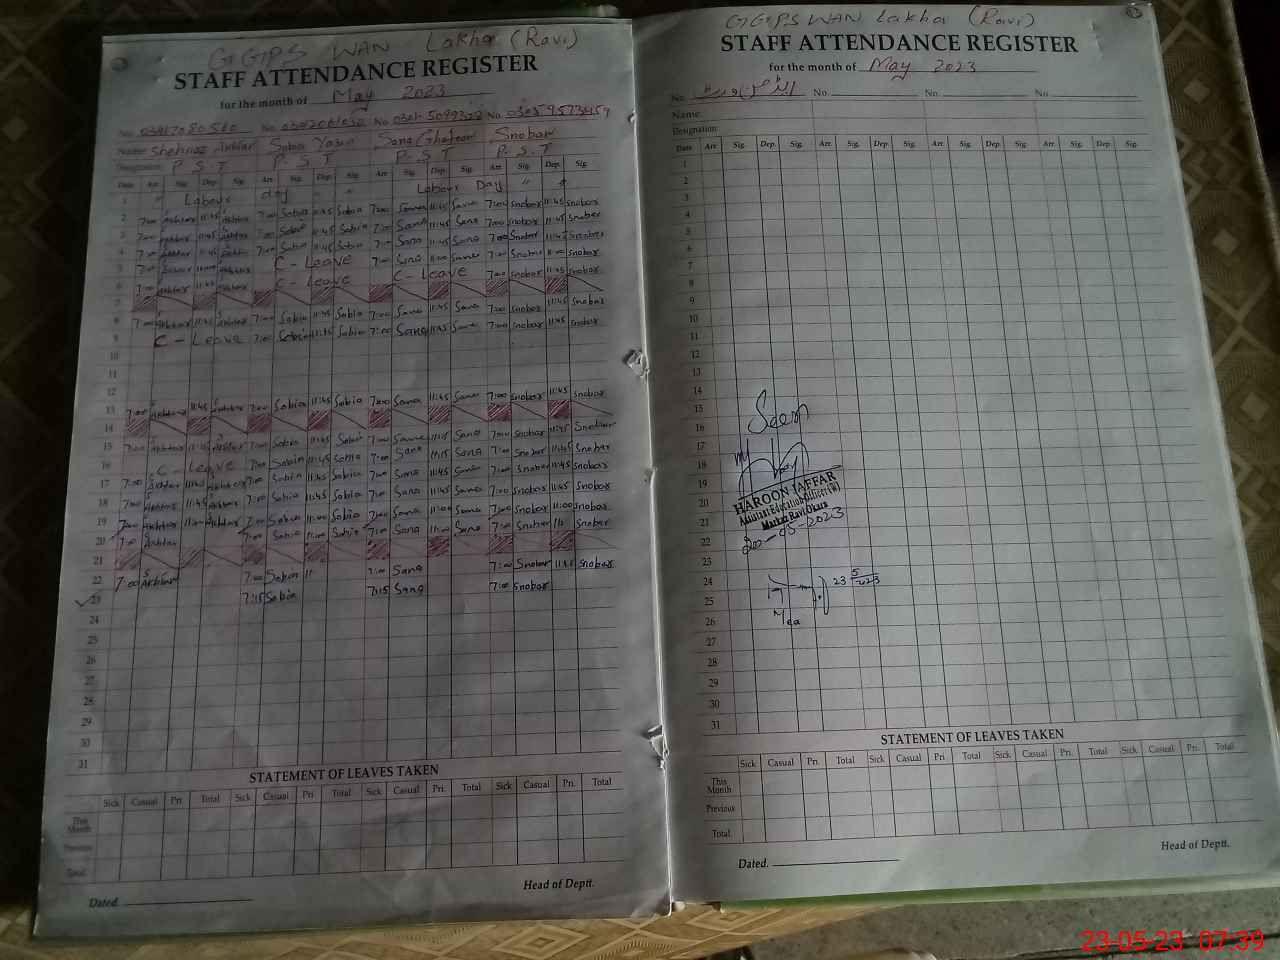 GGPS WAN Lakha (Ravi)
STAFF ATTENDANCE REGISTER
for the month of May 2023
No. No. No. No.
Name: Shehnaz Akhtar Sabia Sana Ghafoor Snobar
Designation: P.S.T P.S.T P.S.T P.S.T
Date Arr. Sig. Dep. Sig. Arr. Sig. Dep. Sig. Arr. Sig. Dep. Sig. Arr. Sig. Dep. Sig.
1 Labour day " Labour Day " "
2 7:00 Akhtar 11:45 Akhtar 7:00 Sabia 11:45 Sabia 7:00 Sana 11:45 Sana 7:00 Snobar 11:45 Snobar
3 7:00 Akhtar 11:45 Akhtar 7:00 Sabia 11:45 Sabia 7:00 Sana 11:45 Sana 7:00 Snobar 11:45 Snobar
4 7:00 Akhtar 11:45 7:00 Sabia 11:45 Sabia 7:00 Sana 11:45 Sana 7:00 Snobar 11:45 Snobar
5 7:00 Akhtar 11:00 Akhtar C - Leave 7:00 Sana 11:00 Sana 7:00 Snobar 11:00 Snobar
6 7:00 Akhtar 11:45 Akhtar C - Leave C - Leave 7:00 Snobar 11:45 Snobar
7
8 7:00 Akhtar 11:45 Akhtar 7:00 Sabia 11:45 Sabia 7:00 Sana 11:45 Sana 7:00 Snobar 11:45 Snobar
9 C - Leave 7:00 Sabia 11:45 Sabia 7:00 Sana 11:45 Sana 7:00 Snobar 11:45 Snobar
10
11
12
13 7:00 Akhtar 11:45 Akhtar 7:00 Sabia 11:45 Sabia 7:00 Sana 11:45 Sana 7:00 Snobar 11:45 Snobar
14
15 7:00 Akhtar 11:45 Akhtar 7:00 Sabia 11:45 Sabia 7:00 Sana 11:45 Sana 7:00 Snobar 11:45 Snobar
16 C - Leave 7:00 Sabia 11:45 Sabia 7:00 Sana 11:45 Sana 7:00 Snobar 11:45 Snobar
17 7:00 Akhtar 11:45 Akhtar 7:00 Sabia 11:45 Sabia 7:00 Sana 11:45 Sana 7:00 Snobar 11:45 Snobar
18 7:00 Akhtar 11:45 Akhtar 7:00 Sabia 11:45 Sabia 7:00 Sana 11:45 Sana 7:00 Snobar 11:45 Snobar
19 7:00 Akhtar 11:00 Akhtar 7:00 Sabia 11:00 Sabia 7:00 Sana 11:00 Sana 7:00 Snobar 11:00 Snobar
20 7:00 Akhtar 7:00 Sabia 11:00 Sabia 7:00 Sana 11:00 Sana 7:00 Snobar 11 Snobar
21
22 7:00 Akhtar 7:00 Sabia 11 7:00 Sana 7:00 Snobar 11:45 Snobar
23 7:15 Sabia 7:15 Sana 7:00 Snobar
24
25
26
27
28
29
30
31
STATEMENT OF LEAVES TAKEN
Sick Casual Pri. Total Sick Casual Pri. Total Sick Casual Pri. Total Sick Casual Pri. Total
This Month
Previous
Total
Dated. Head of Deptt.
GGPS WAN Lakha (Ravi)
STAFF ATTENDANCE REGISTER
for the month of May 2023
No. No. No. No.
Name:
Designation:
Date Arr. Sig. Dep. Sig. Arr. Sig. Dep. Sig. Arr. Sig. Dep. Sig. Arr. Sig. Dep. Sig.
1
2
3
4
5
6
7
8
9
10
11
12
13
14
15
16
17
18
19
20
21
22
23
24
25
26
27
28
29
30
31
HAROON JAFFAR
Assistant Education Officer (W)
Markaz Ravi Okara
20-05-2023
23 5 2023
Mea
STATEMENT OF LEAVES TAKEN
Sick Casual Pri. Total Sick Casual Pri. Total Sick Casual Pri. Total Sick Casual Pri. Total
This Month
Previous
Total
Dated. Head of Deptt.
23-05-23 07:39